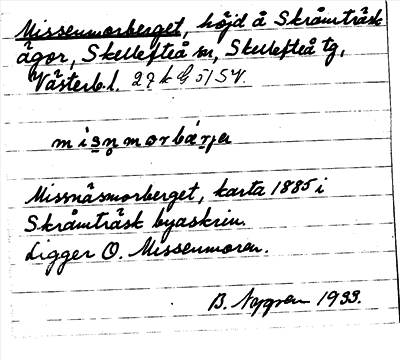 Missenmorberget, höjd å Skråmträsk
ägor, Skellefteå sn, Skellefteå tg,
Västerb. l. 22 k G 5/SV.
misn̥morbärja
Missnäsmorberget, karta 1885 i
Skråmträsk byaskrin.
Ligger O. Missenmoran.
B. Nygren 1933.